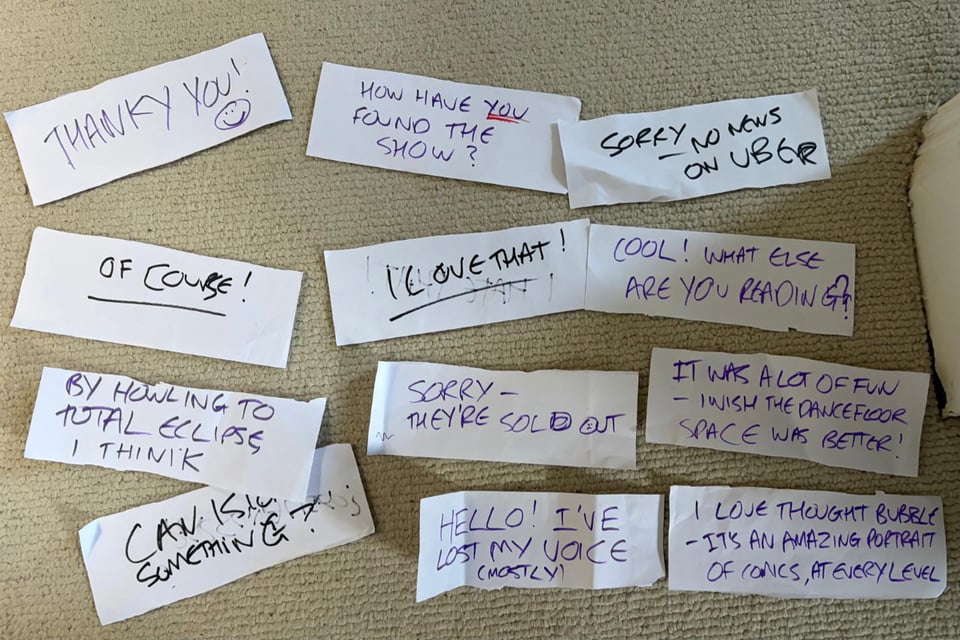 THANKY YOU!
HOW HAVE YOU
FOUND THE
SHOW?
SORRY - NO NEWS
ON UBER
OF COURSE!
I LOVE THAT!
COOL! WHAT ELSE
ARE YOU READING?
BY HOWLING TO
TOTAL ECLIPSE,
I THINK
SORRY -
THEY'RE SOLD OUT
IT WAS A LOT OF FUN
- I WISH THE DANCEFLOOR
SPACE WAS BETTER!
CAN I
SOMETHING?
HELLO! I'VE
LOST MY VOICE
(MOSTLY)
I LOVE THOUGHT BUBBLE
- IT'S AN AMAZING PORTRAIT
OF COMICS, AT EVERY LEVEL